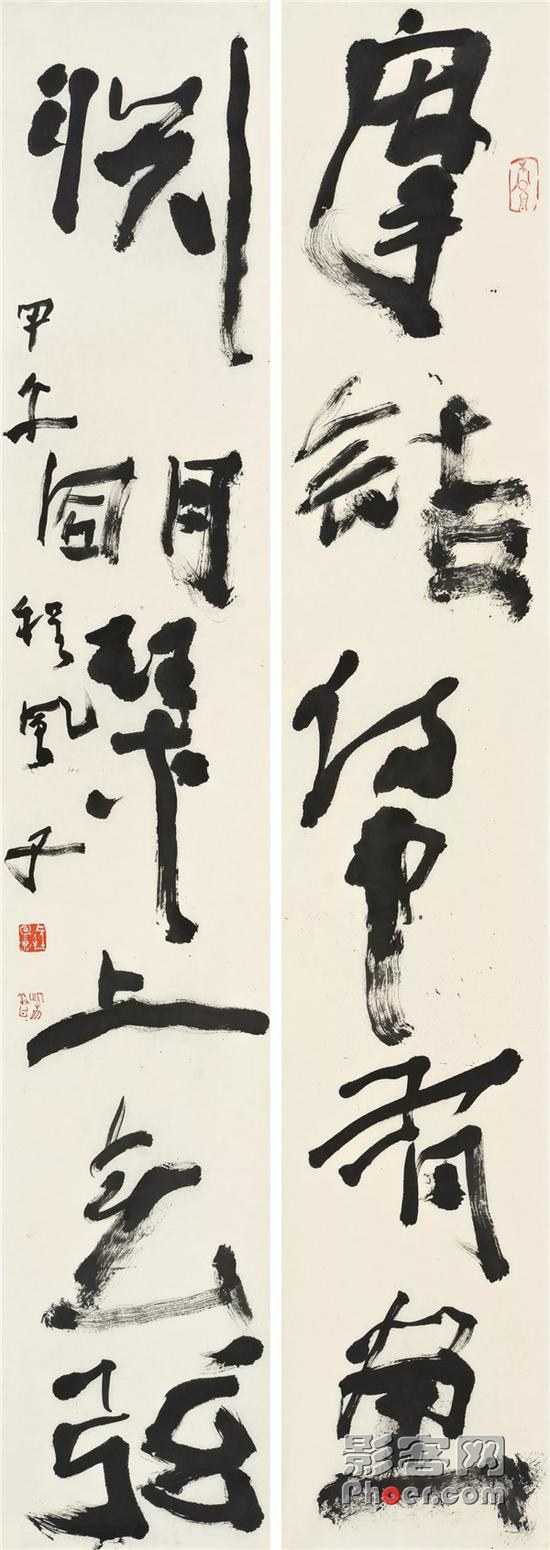 摩詰詩中有畫
淵明琴上无弦
甲午程風子
影客网
Phoer.com